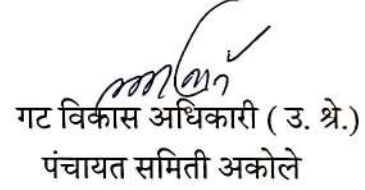 गट विकास अधिकारी ( उ. श्रे.)
पंचायत समिती अकोले